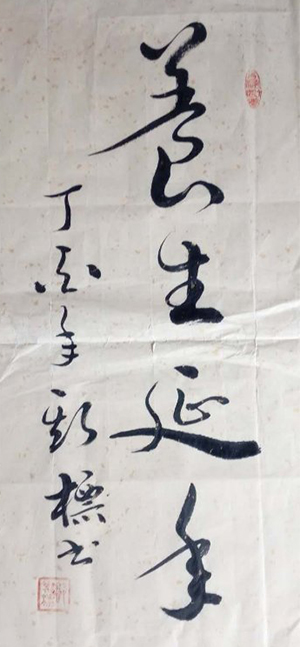 養生延年
丁酉年 標书